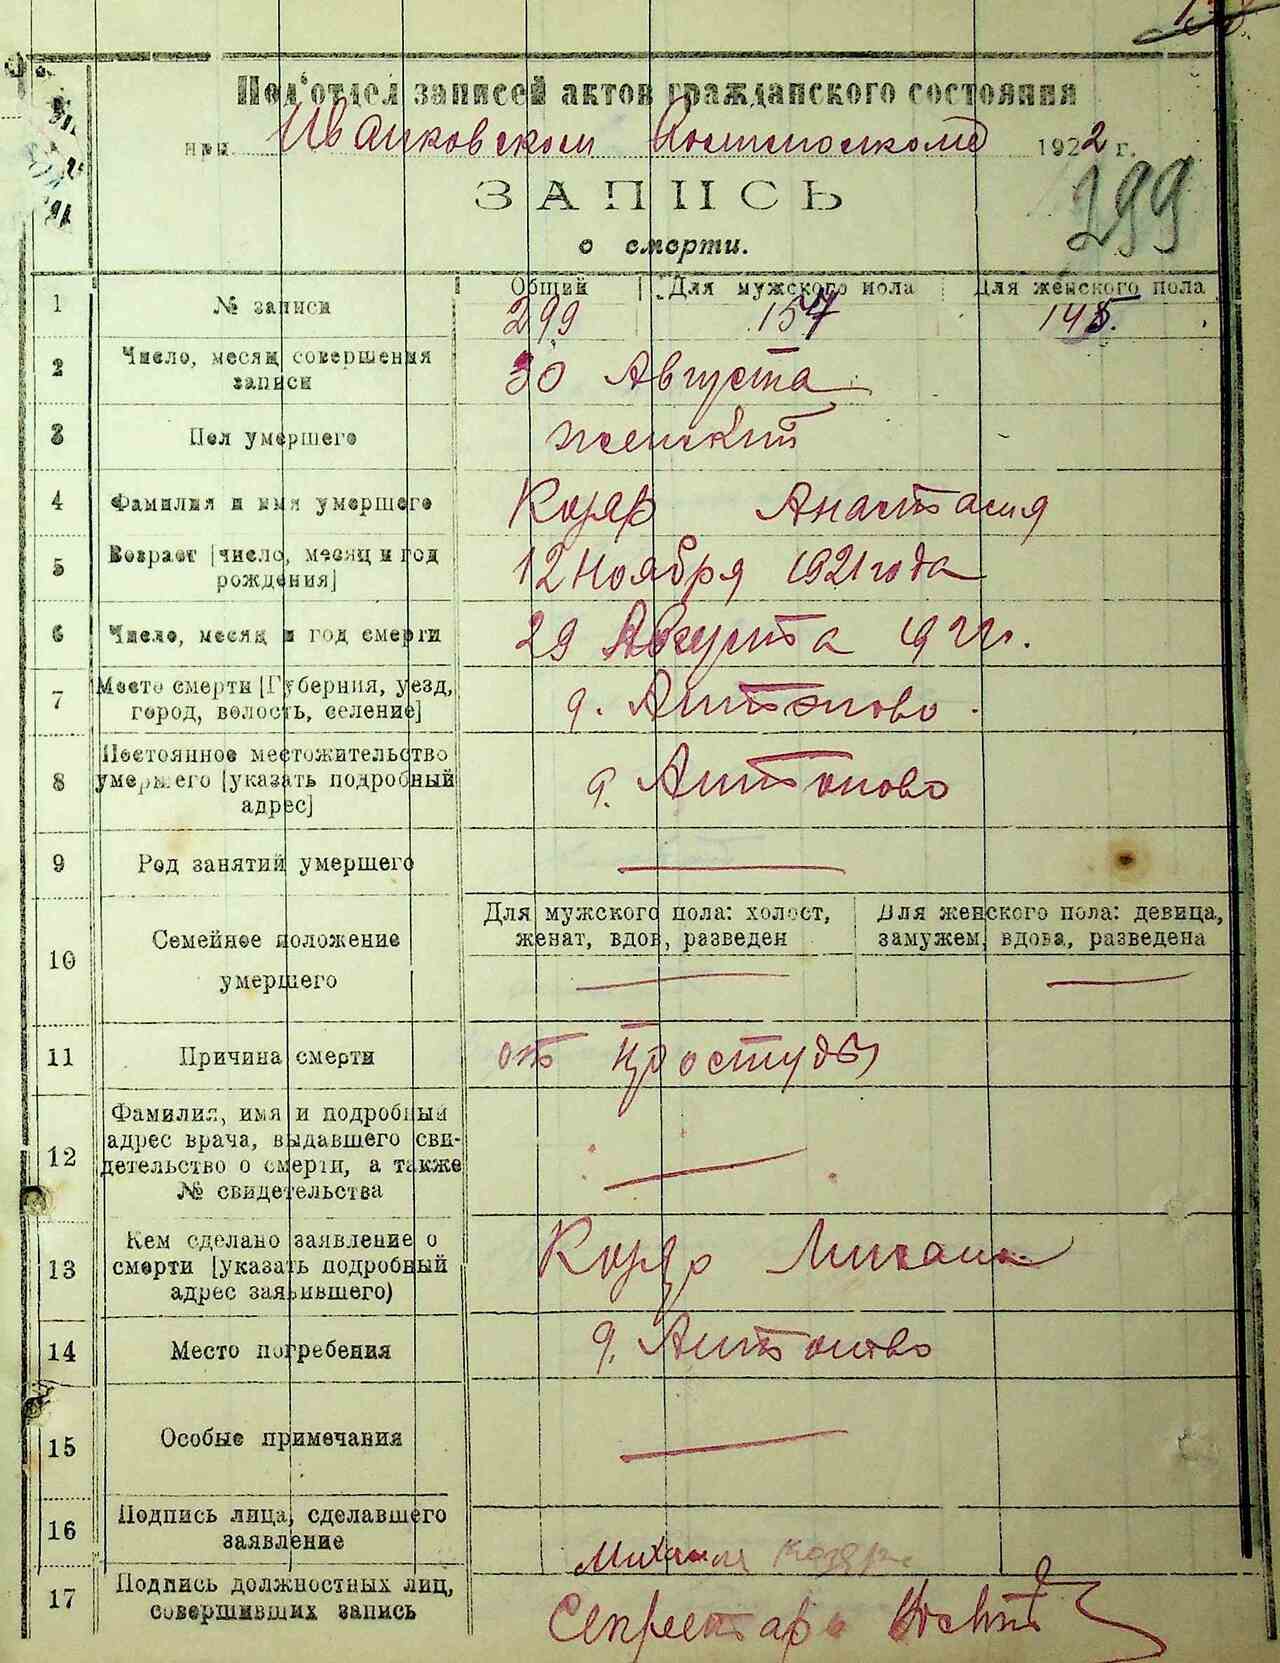 Под'отдел записей актов гражданского состояния
при Иванковском Волисполкоме 1922 г.
299
ЗАПИСЬ
о смерти.
Общий Для мужского пола Для женского пола
1 № записи 299 154 145.
2 Число, месяц совершения
записи 30 Августа
3 Пол умершего женский
4 Фамилия и имя умершего Козяр Анастасия
5 Возраст [число, месяц и год
рождения] 12 Ноября 1921 года
6 Число, месяц и год смерти 29 Августа 1922 г.
7 Место смерти [Губерния, уезд,
город, волость, селение] д. Антоново.
8 Постоянное местожительство
умершего [указать подробный
адрес] д. Антоново
9 Род занятий умершего
10 Семейное положение
умершего
Для мужского пола: холост,
женат, вдов, разведен
Для женского пола: девица,
замужем, вдова, разведена
11 Причина смерти от простуды
12 Фамилия, имя и подробный
адрес врача, выдавшего сви-
детельство о смерти, а также
№ свидетельства
13 Кем сделано заявление о
смерти [указать подробный
адрес заявившего) Козяр Михаил
14 Место погребения д. Антоново
15 Особые примечания
16 Подпись лица, сделавшего
заявление Михаил Козяр
17 Подпись должностных лиц,
совершивших запись Секретарь